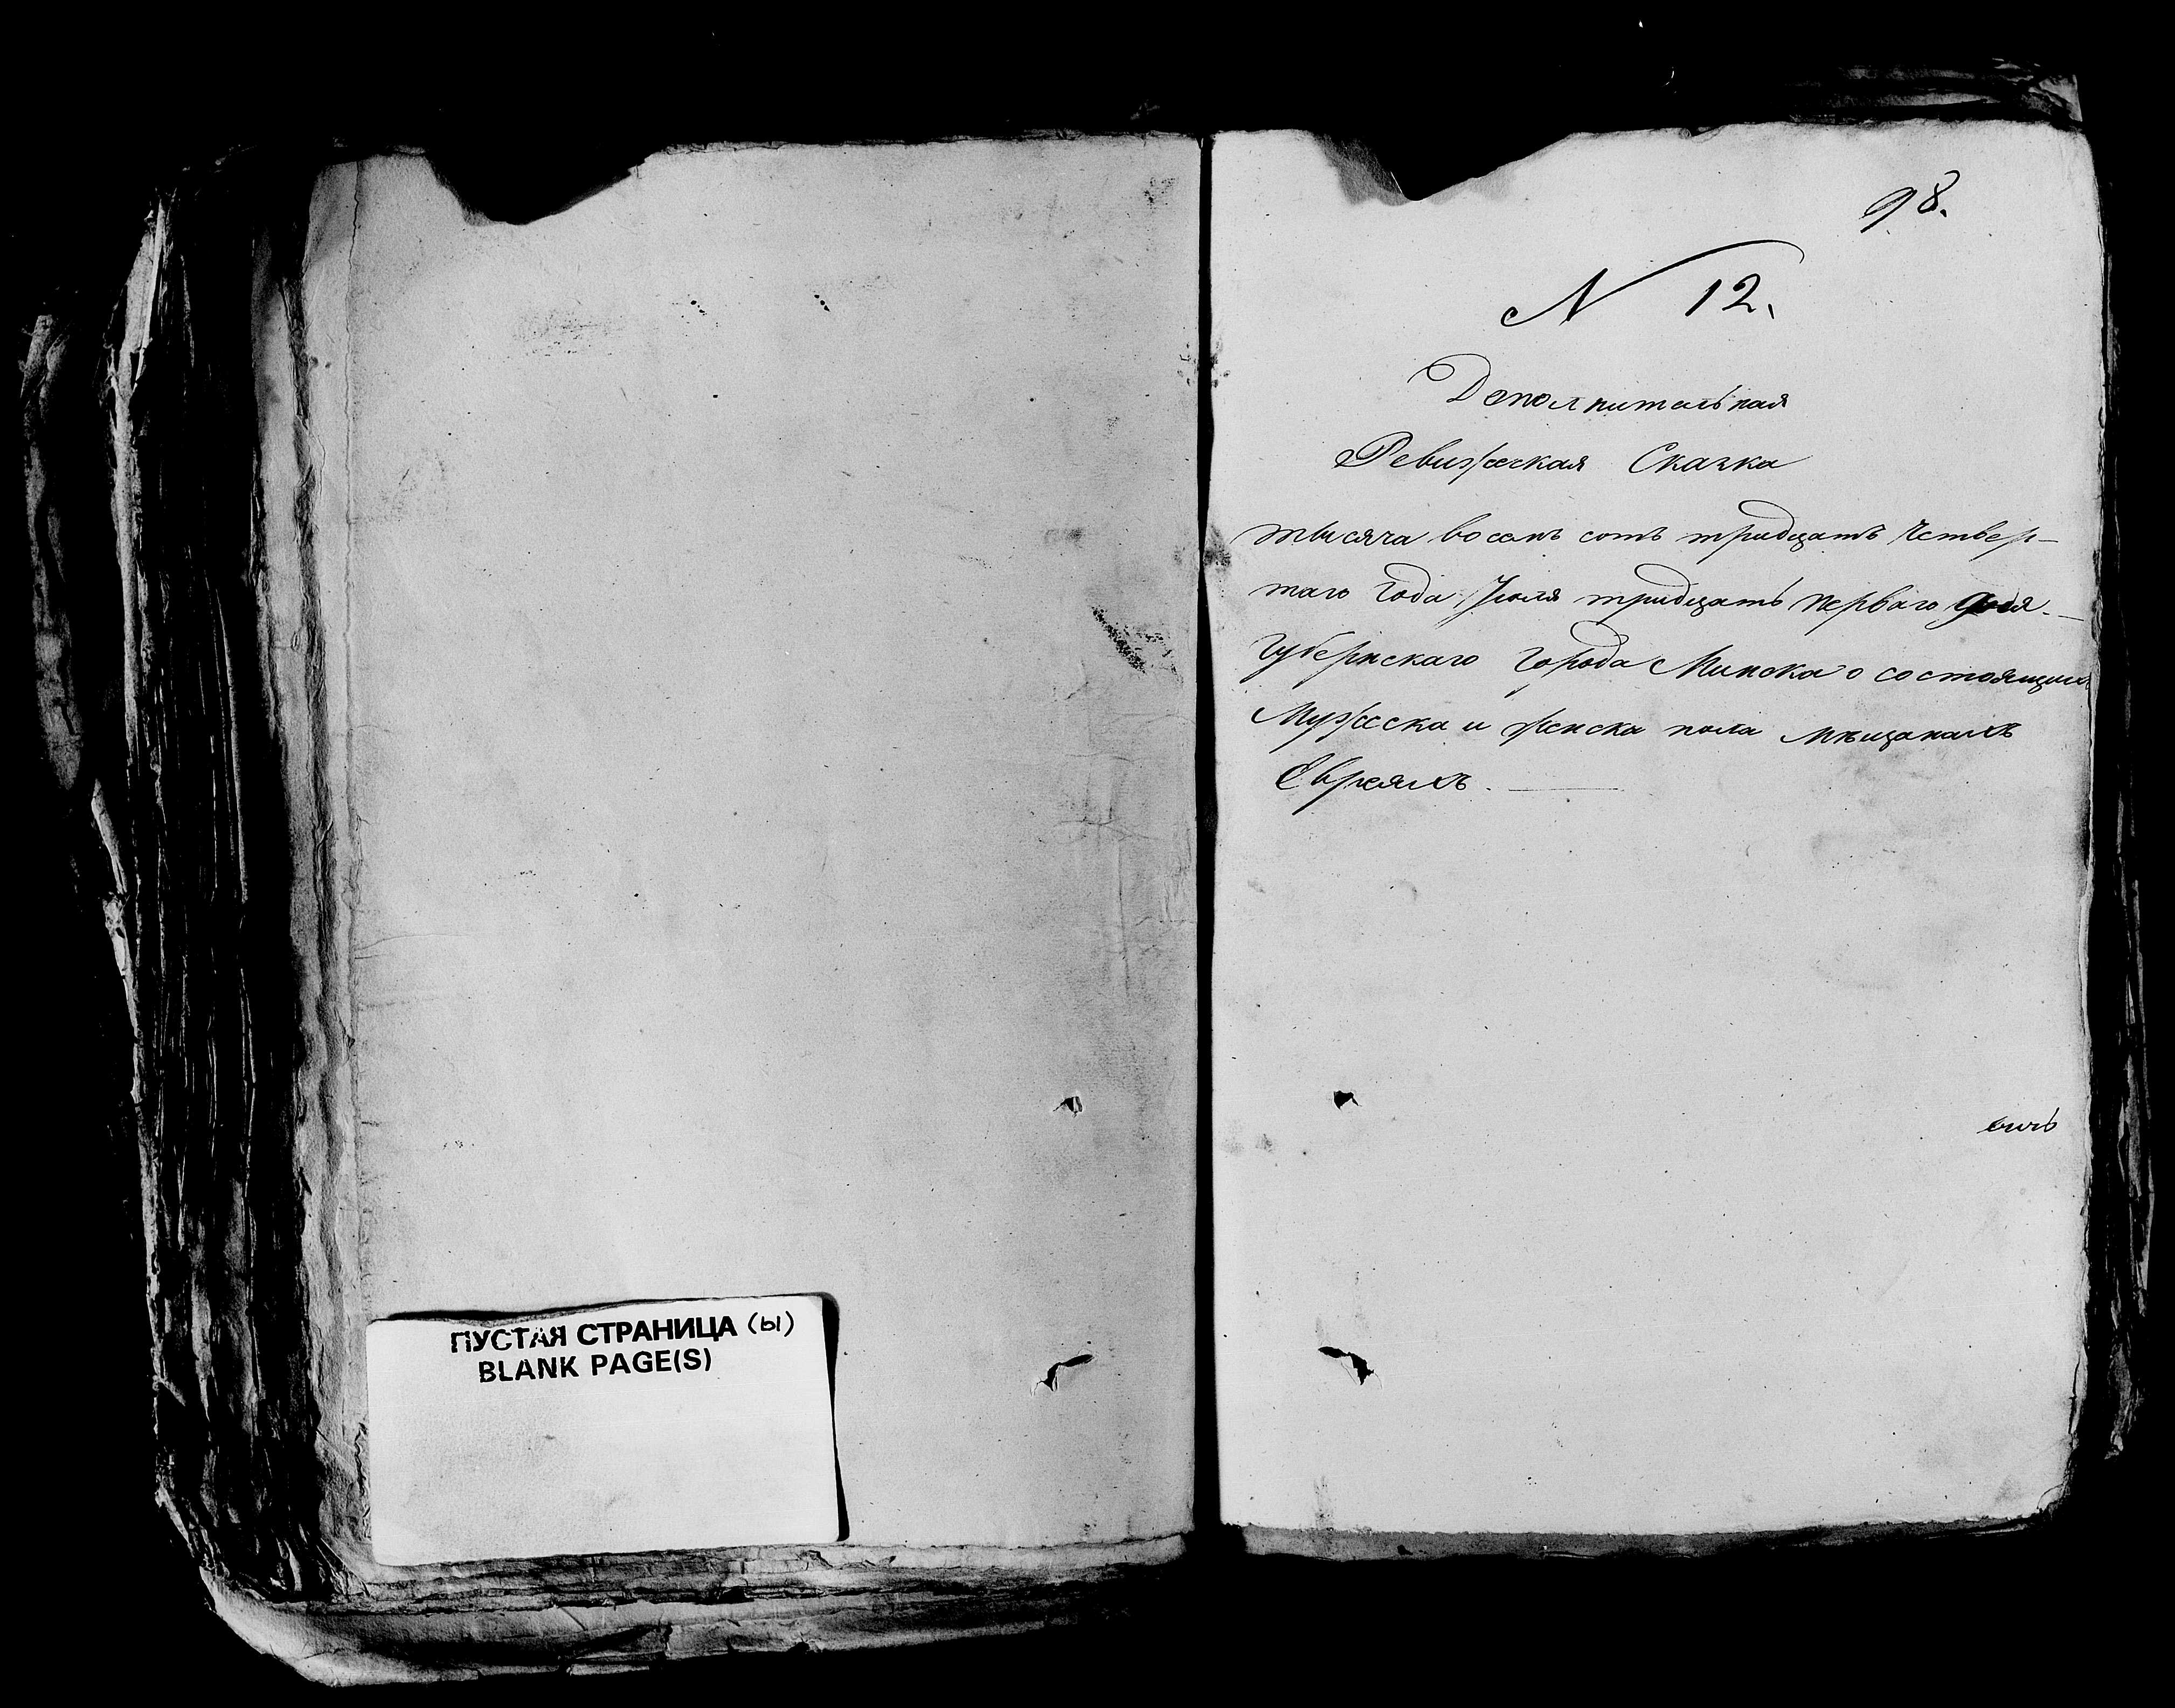 ПУСТАЯ СТРАНИЦА (ы)
BLANK PAGE(S)
98.
N 12.
Дополнительная
Ревижская Сказка
тысяча восемь сотъ тридцать четвер-
таго года Іюля тридцать перваго дня
Губернскаго города Минска о состоящихъ
Мужеска и женска пола мѣщанахъ
Евреяхъ.